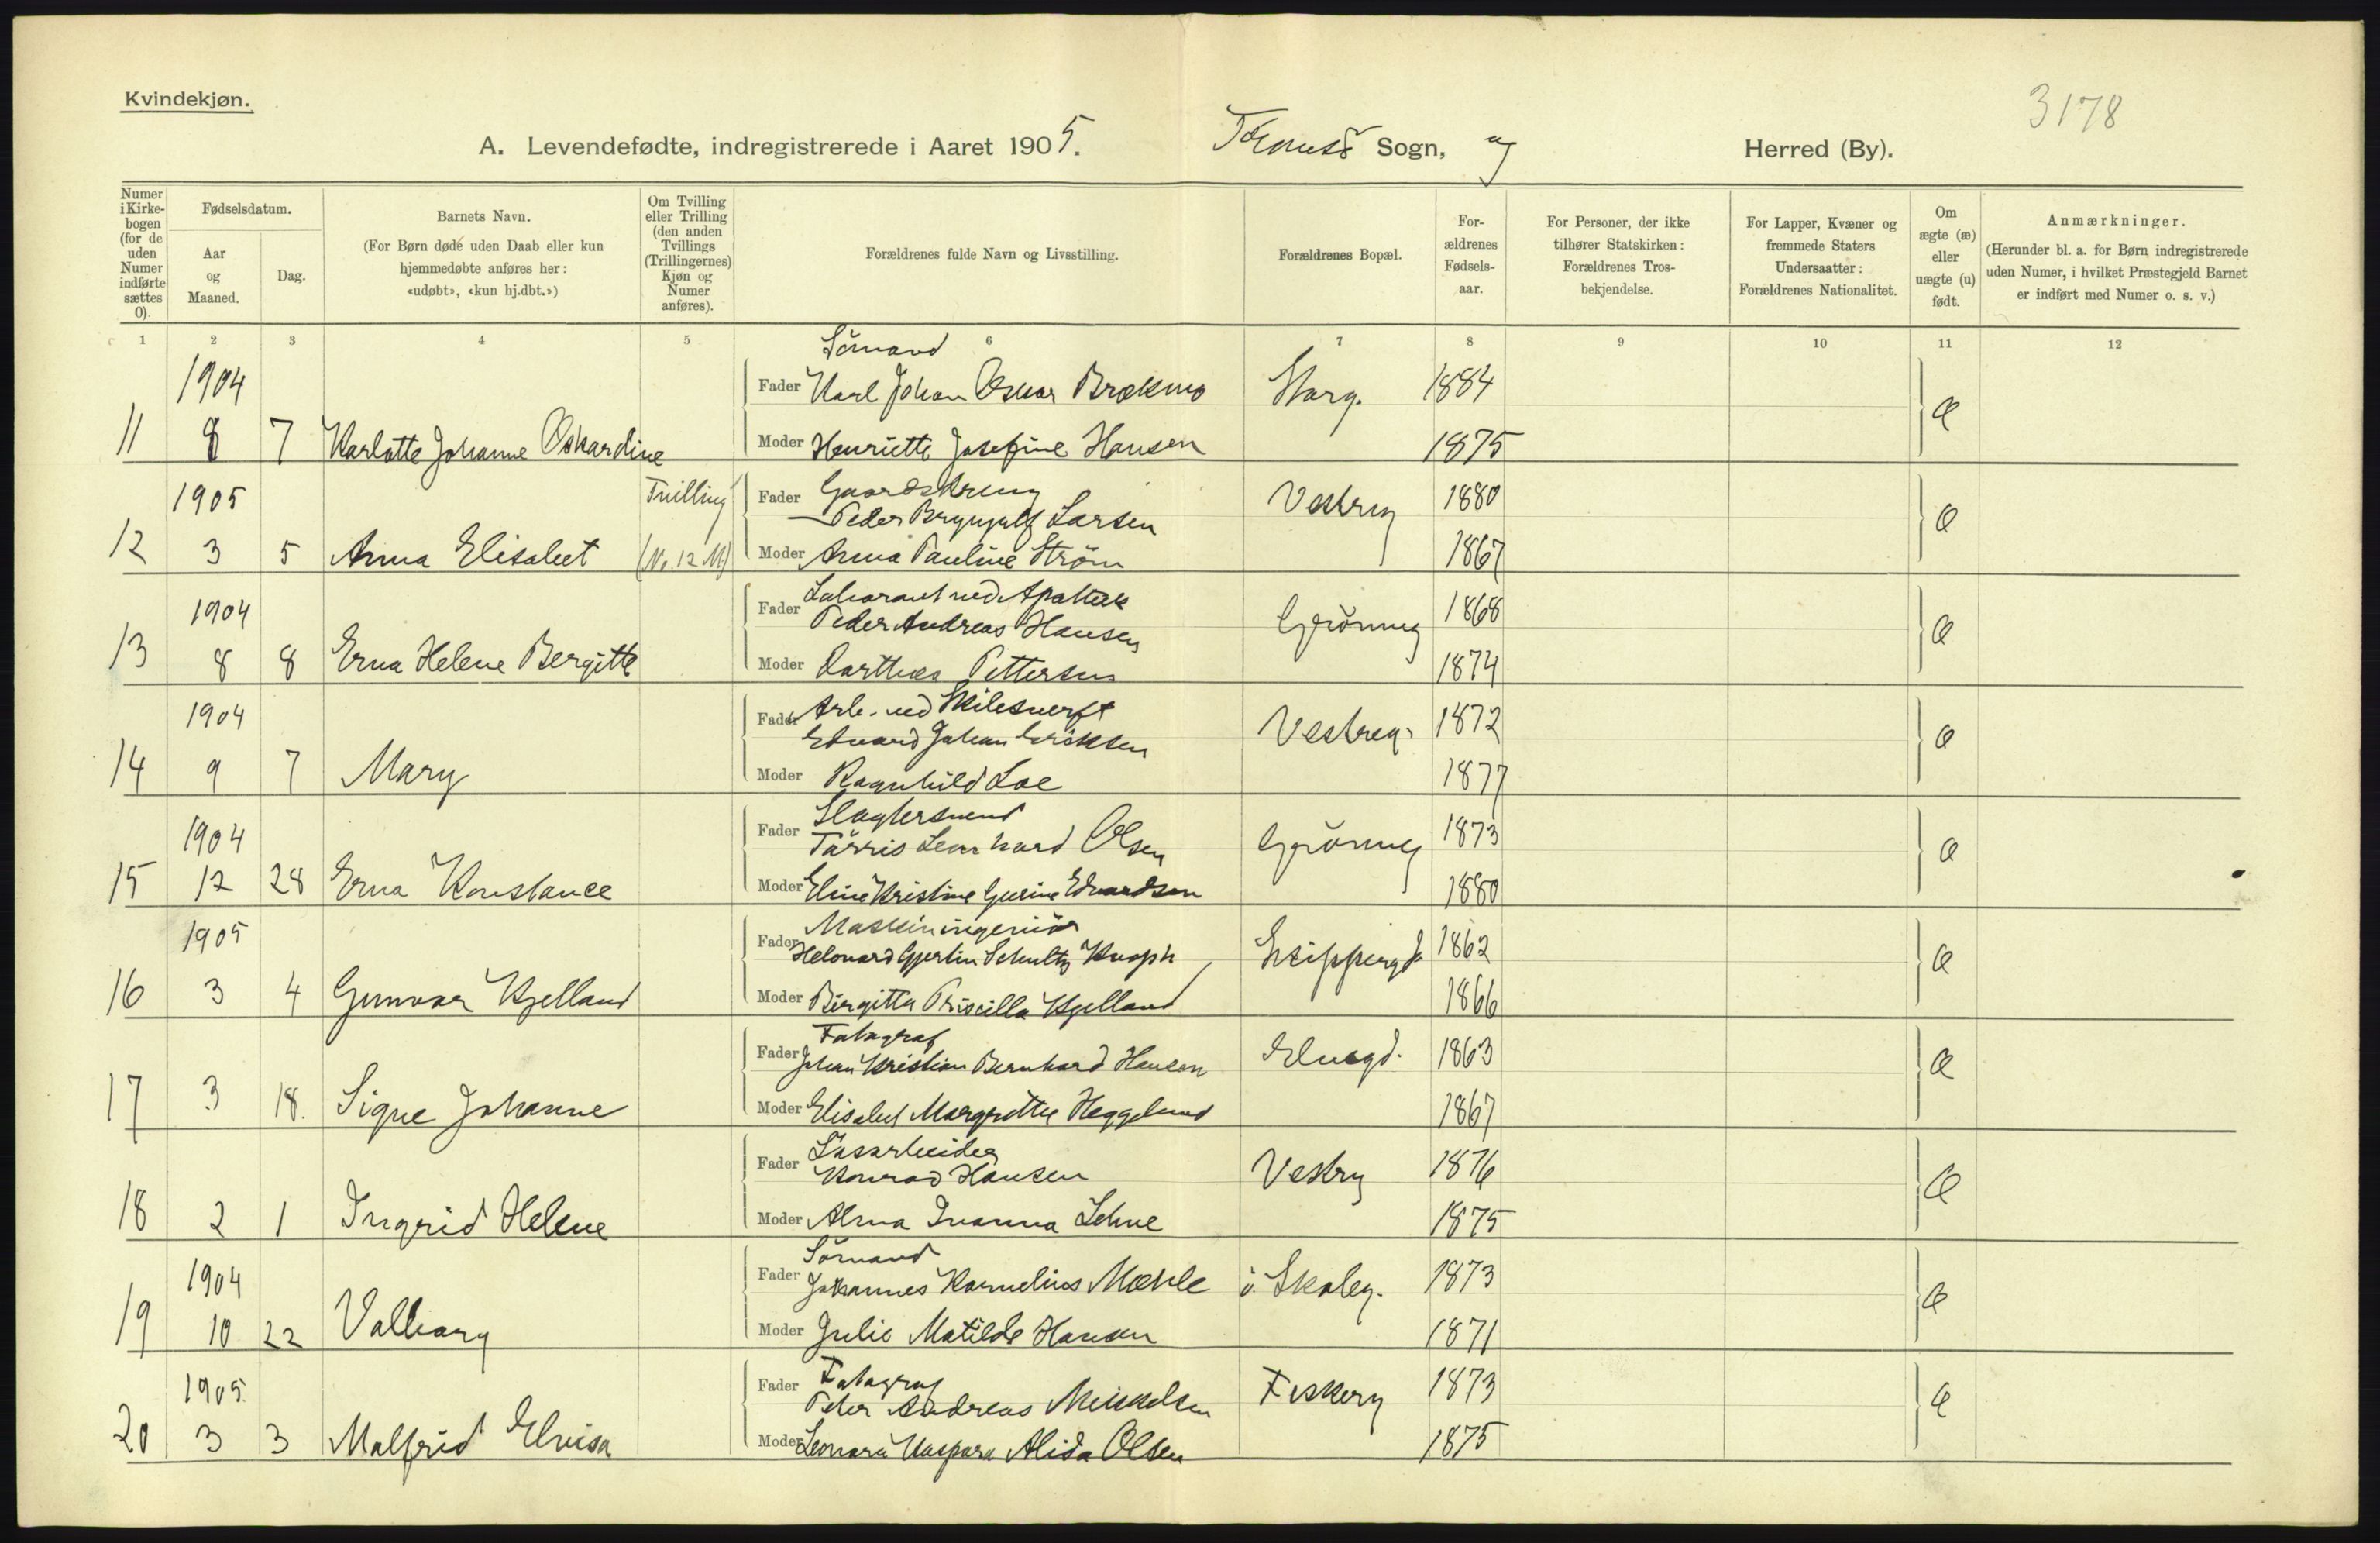 Kvindekjøn.
3178
A. Levendefødte, indregistrerede i Aaret 1905. Tromsö Sogn, og Herred (By).
Numer i Kirkebogen (for de uden Numer indførte sættes 0).
Fødselsdatum.
Aar og Maaned.
Dag.
Barnets Navn.
(For Børn døde uden Daab eller kun hjemmedøbte anføres her: «udøbt», «kun hj.dbt.»)
Om Tvilling eller Trilling (den anden Tvillings (Trillingernes) Kjøn og Numer anføres).
Forældrenes fulde Navn og Livsstilling.
Forældrenes Bopæl.
Forældrenes Fødselsaar.
For Personer, der ikke tilhører Statskirken: Forældrenes Trosbekjendelse.
For Lapper, Kvæner og fremmede Staters Undersaatter: Forældrenes Nationalitet.
Om ægte (æ) eller uægte (u) født.
Anmærkninger.
(Herunder bl. a. for Børn indregistrerede uden Numer, i hvilket Præstegjeld Barnet er indført med Numer o. s. v.)
1 2 3 4 5 6 7 8 9 10 11 12
Sömand
1904 Fader Karl Johan Oskar Brækmo Storg. 1884 æ
11 8 7 Karlotte Johanne Oskardine Moder Henriette Josefine Hansen 1875
1905 Tvilling Fader Gaardsdreng Vestreg 1880 æ
Peder Brynjulf Larsen
12 3 5 Anna Elisabet (No. 12 M) Moder Anna Pauline Ström 1867
1904 Fader Laborant ved Apothek Grönneg 1868 æ
Peder Andreas Hansen
13 8 8 Erna Helene Bergitte Moder Dorthea Pettersen 1874
1904 Fader Arb. ved Skibsverft Vestreg. 1872 æ
Edvard Johan Eriksen
14 9 7 Mary Moder Ragnhild Loe 1877
1904 Fader Slagtersvend Grönneg 1873 æ
Tärris Leonhard Olsen
15 12 28 Erna Konstance Moder Eline Kristine Gurine Edvardsen 1880
1905 Maskiningeniör
Fader Helouard Gjertin Schultz Knoph Skipperg 1862 æ
16 3 4 Gunvor Kjelland Moder Birgitta Priscilla Kjelland 1866
Fotograf
Fader Johan Kristian Bernhard Hansen Elvegd. 1863 æ
17 3 18. Signe Johanne Moder Elisabet Margrethe Heggelund 1867
Fader Løsarbeider Vestrg 1876 æ
Konrad Hansen
18 2 1 Ingrid Helene Moder Alma Ivanna Lehne 1875
Sömand
1904 Fader Johannes Kornelius Mæhle ö. Skoleg. 1873 æ
19 10 22 Valborg Moder Julie Matilde Hansen 1871
1905. Fader Fotograf Fiskerg 1873 æ
Peter Andreas Mikkelsen
20 3 3 Malfrid Elvisa Moder Leonora Kaspara Alida Olsen 1875